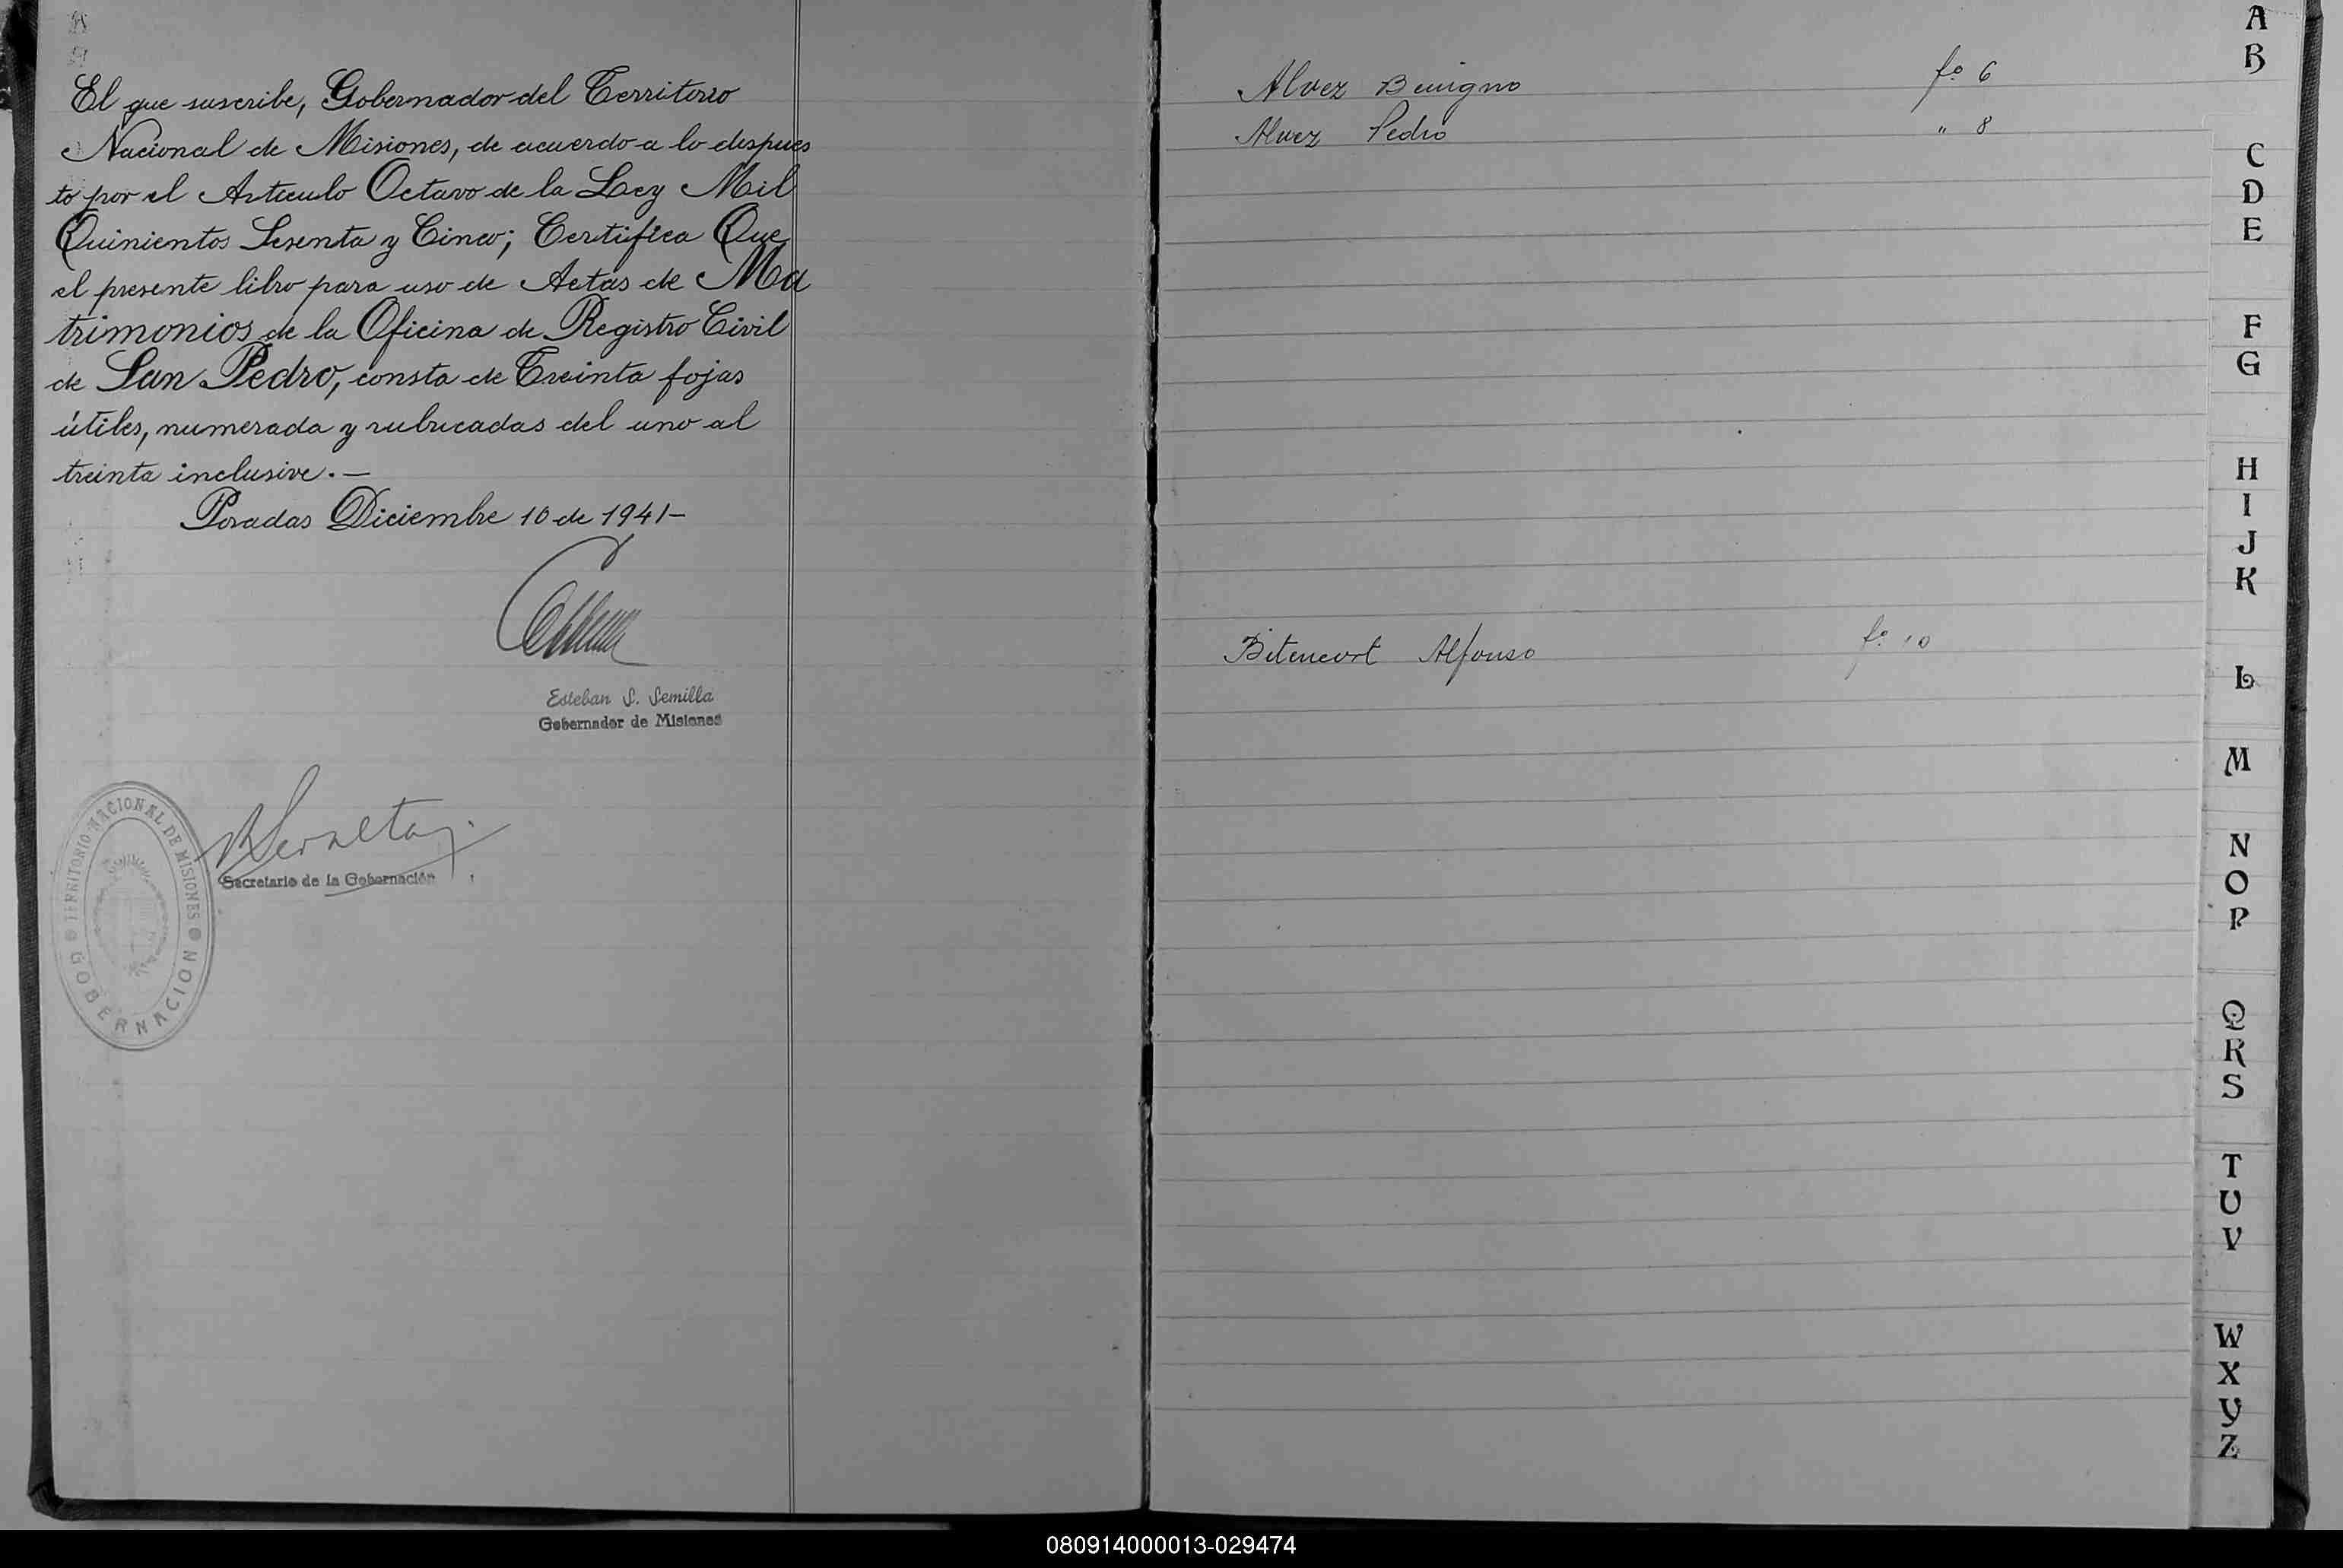 El que suscribe, Gobernador del Territorio
Nacional de Misiones, de acuerdo a lo dispues
to por el Artículo Octavo de la Ley Mil
Quinientos Sesenta y Cinco; Certifica Que
el presente libro para uso de Actas de Ma
trimonios de la Oficina de Registro Civil
de San Pedro, consta de Treinta fojas
útiles, numerada y rubricadas del uno al
treinta inclusive.—
Posadas Diciembre 10 de 1941—
Esteban S. Semilla
Gobernador de Misiones
Secretario de la Gobernación
TERRITORIO NACIONAL DE MISIONES
GOBERNACION
Alvez Benigno fº 6
Alvez Pedro " 8
Bitencort Alfonso fº 10
A
B
C
D
E
F
G
H
I
J
K
L
M
N
O
P
Q
R
S
T
U
V
W
X
Y
Z
080914000013-029474